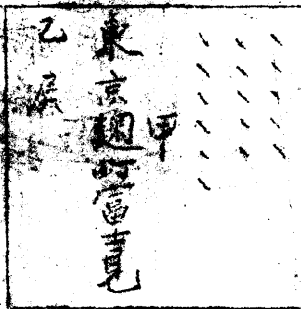 甲
東京麹町富士見
乙